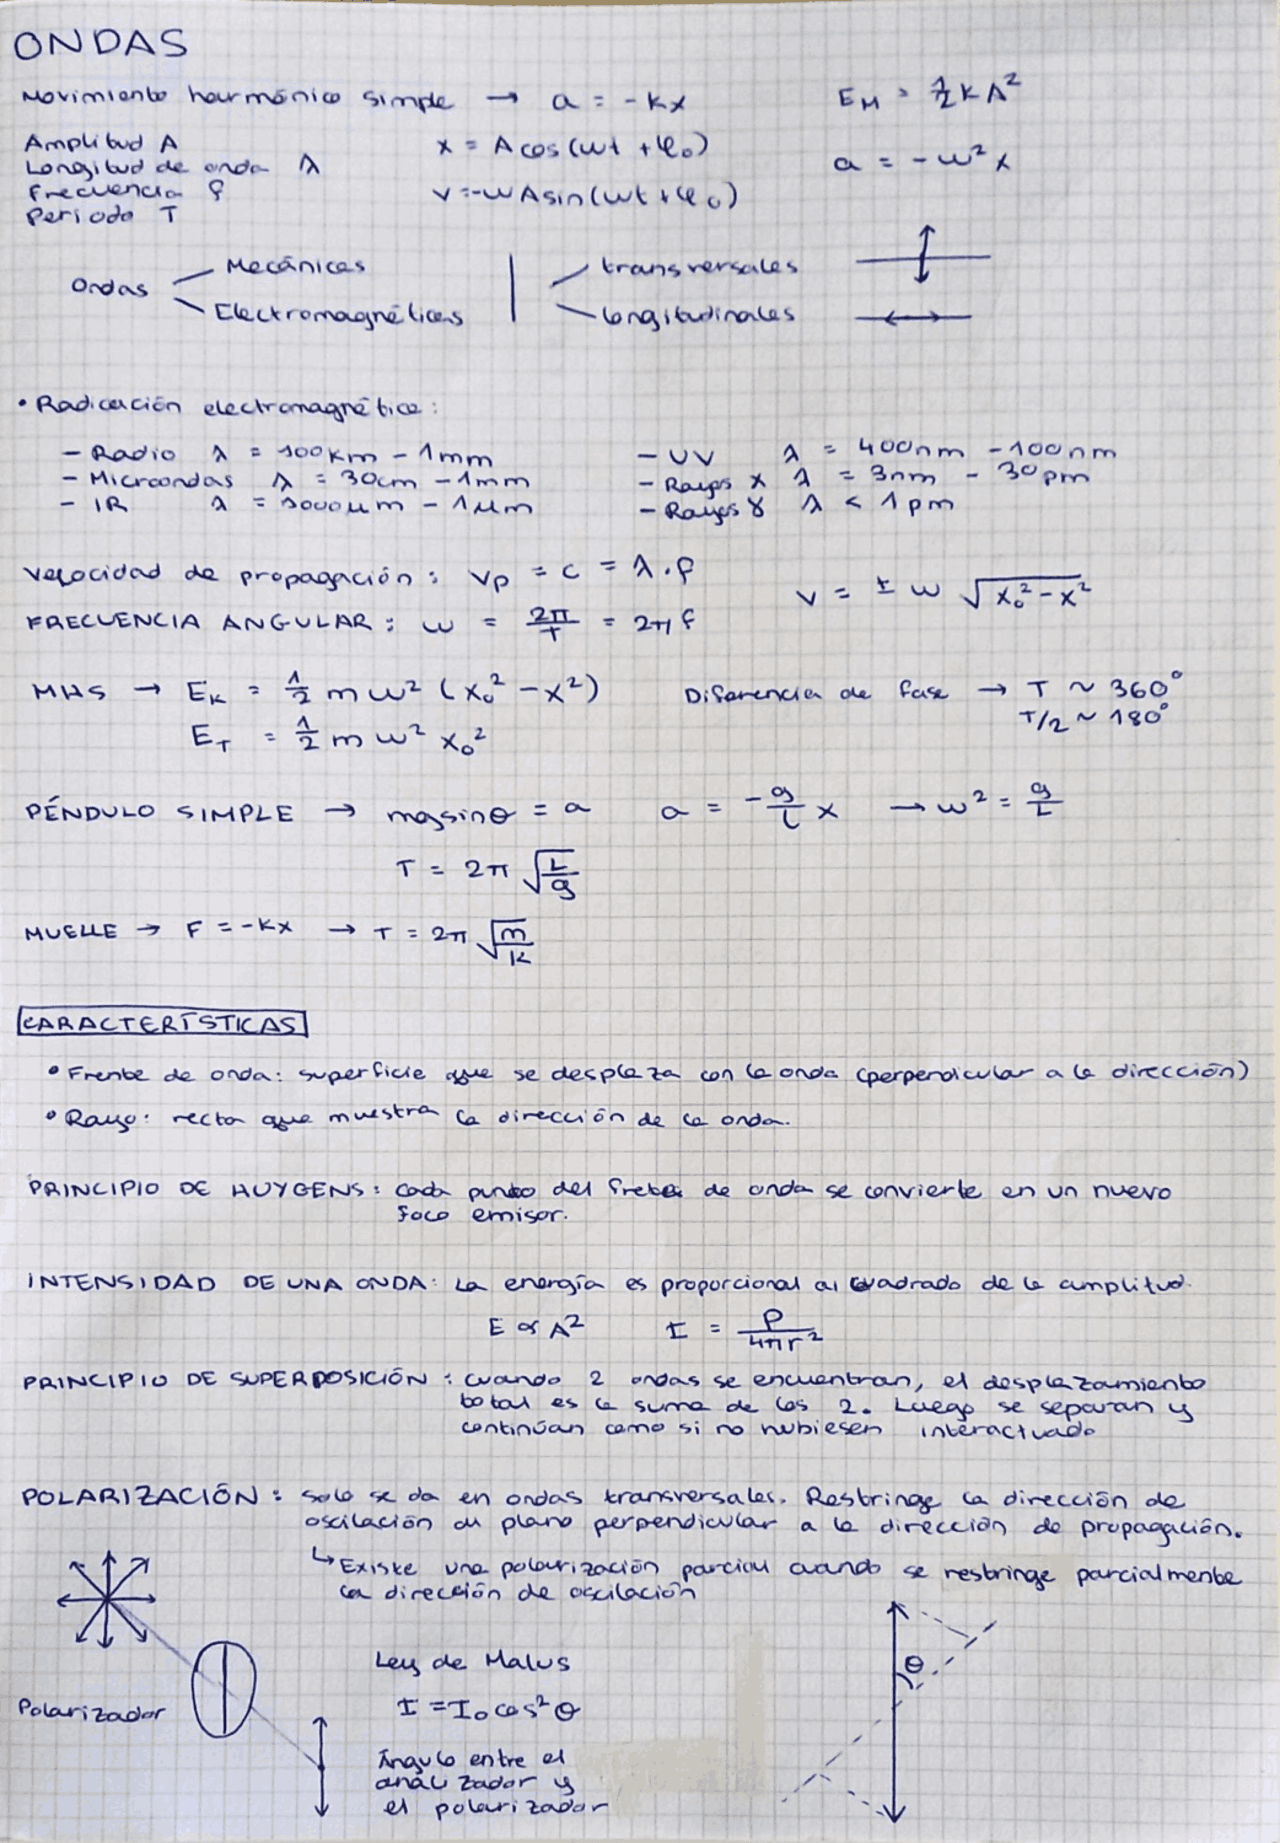 ONDAS
Movimiento harmónico simple → a = -kx   E_M = 1/2 k A²
Amplitud A   x = A cos(ωt + φ₀)
Longitud de onda λ   a = -ω² x
Frecuencia f   v = -ωA sin(ωt + φ₀)
Periodo T
Ondas   Mecánicas   transversales
Electromagnéticas   longitudinales
• Radiación electromagnética:
- Radio λ = 100km - 1mm   - UV λ = 400nm - 100nm
- Microondas λ = 30cm - 1mm   - Rayos X λ = 3nm - 30pm
- IR λ = 1000μm - 1μm   - Rayos γ λ < 1pm
Velocidad de propagación: vp = c = λ·f   v = ± ω √(x₀² - x²)
FRECUENCIA ANGULAR: ω = 2π/T = 2πf
MHS → E_K = 1/2 m ω² (x₀² - x²)   Diferencia de fase → T ~ 360°
E_T = 1/2 m ω² x₀²   T/2 ~ 180°
PÉNDULO SIMPLE → mg sinθ = a   a = -g/L x → ω² = g/L
T = 2π √(L/g)
MUELLE → F = -kx → T = 2π √(m/k)
CARACTERÍSTICAS
• Frente de onda: superficie que se desplaza con la onda (perpendicular a la dirección)
• Rayo: recta que muestra la dirección de la onda.
PRINCIPIO DE HUYGENS: cada punto del frete de onda se convierte en un nuevo
foco emisor.
INTENSIDAD DE UNA ONDA: La energía es proporcional al cuadrado de la amplitud.
E ∝ A²   I = P/4πr²
PRINCIPIO DE SUPERPOSICIÓN: cuando 2 ondas se encuentran, el desplazamiento
total es la suma de las 2. Luego se separan y
continúan como si no hubiesen interactuado
POLARIZACIÓN: solo se da en ondas transversales. Restringe la dirección de
oscilación al plano perpendicular a la dirección de propagación.
↳ Existe una polarización parcial cuando se restringe parcialmente
la dirección de oscilación
Ley de Malus   θ
Polarizador   I = I₀ cos² θ
Ángulo entre el
analizador y
el polarizador